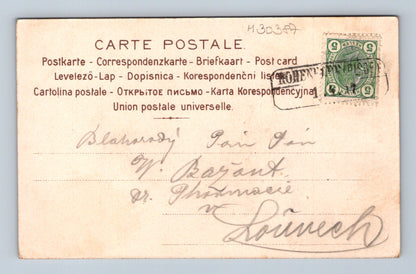 M30397
CARTE POSTALE.
Postkarte - Correspondenzkarte - Briefkaart - Post card
Levelező-Lap - Dopisnica - Korespondenční lístek
Cartolina postale - Открытое письмо - Karta Korespondencyjna
Union postale universelle.
5 5
Blahorodý Pán Pán
W. Bažant
Dr. Pharmacie
v
Lounech